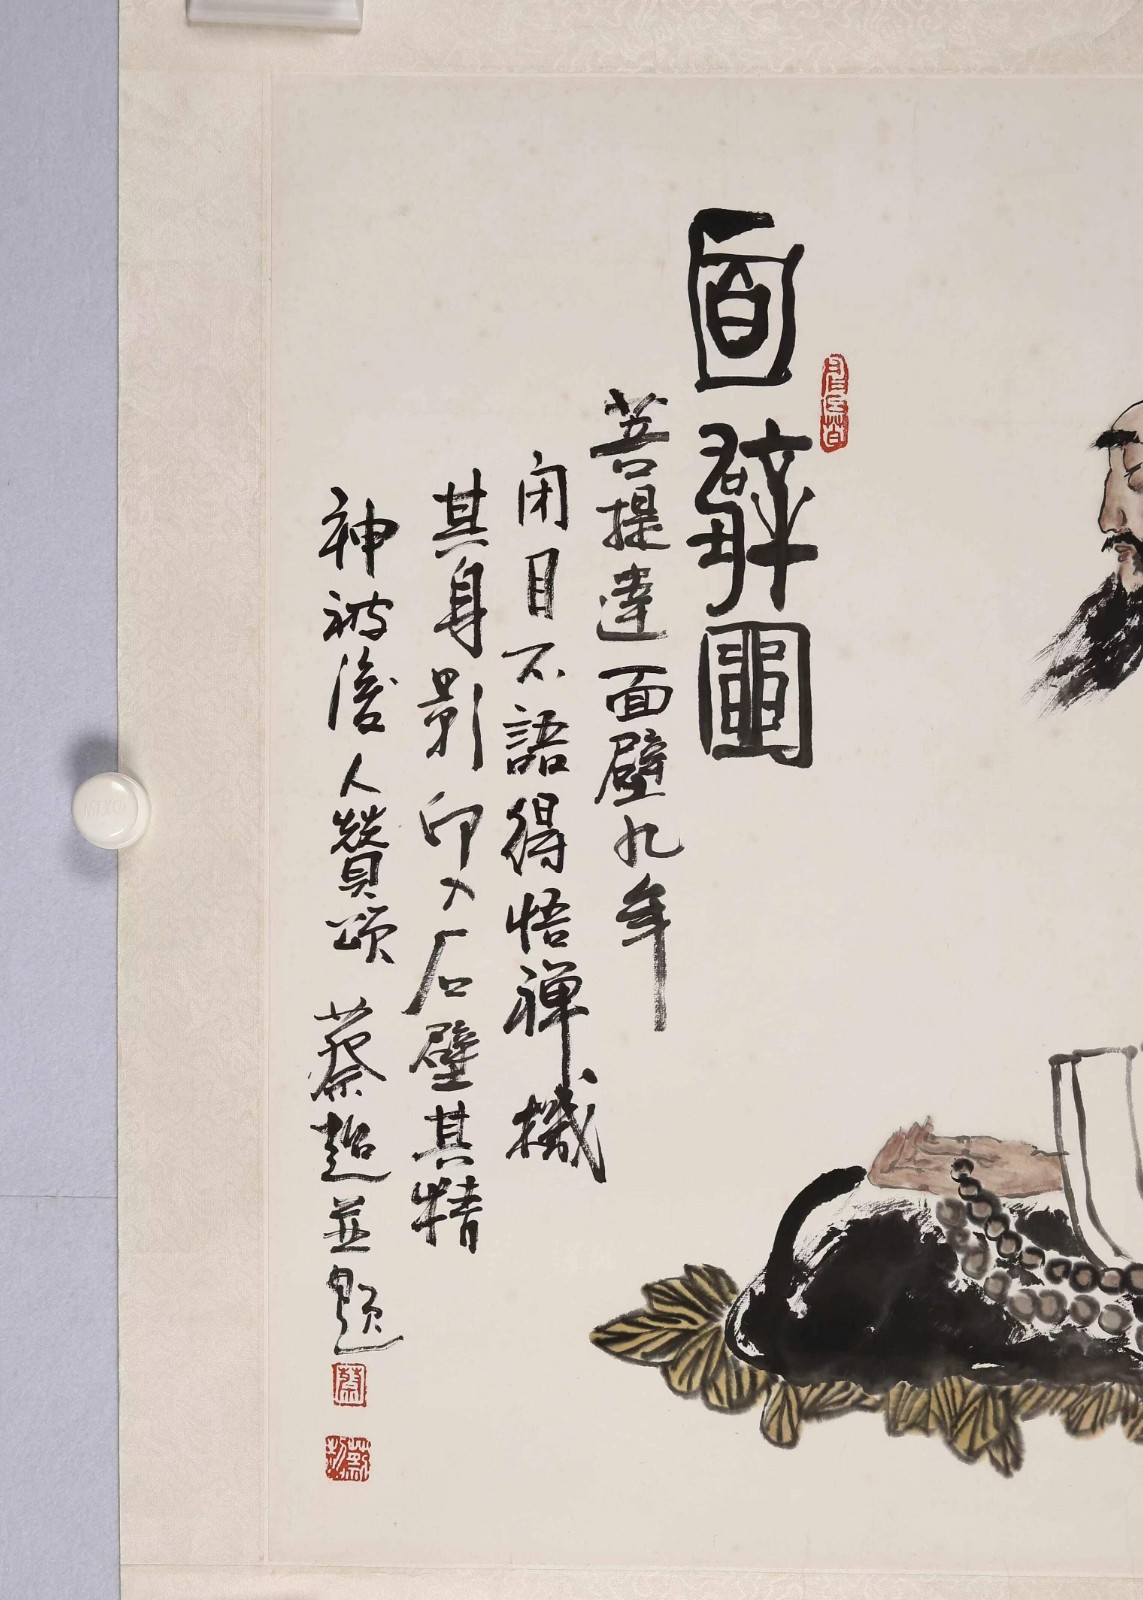 面壁圖
菩提達面壁九年
闭目不語得悟禅機
其身影印入石壁其精
神被後人贊頌 蔡超並题